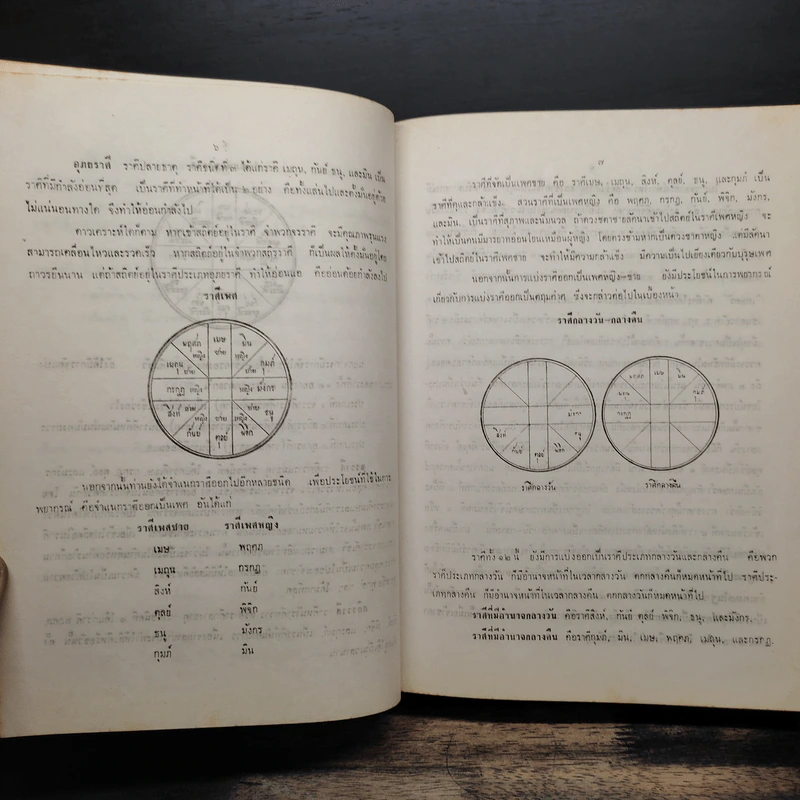 ๖
อุภยราศี ราศีปลายธาตุ ราศีชนิดที่๓ ได้แก่ราศี เมถุน, กันย์ ธนู, และมีน เป็น
ราศีที่มีกำลังอ่อนที่สุด เป็นราศีที่ทำหน้าที่ได้เป็น ๒ อย่าง คือทั้งแล่นไปและคงมั่นอยู่ด้วย
ไม่แน่นอนทางใด จึงทำให้อ่อนกำลังไป
ดาวเคราะห์ใดก็ตาม หากเข้าสถิตย์อยู่ในราศี จำพวกจรราศี จะมีคุณภาพรุนแรง
สามารถเคลื่อนไหวและรวดเร็ว หากสถิตย์อยู่ในจำพวกสถิรราศี ก็เป็นผลให้คงมั่นอยู่โดย
ถาวรยืนนาน แต่ถ้าสถิตย์อยู่ในราศีประเภทอุภยราศี ทำให้อ่อนแอ คือถอยด้อยกำลังลงไป
ราศีเพส
พฤศภ หญิง
เมษ ชาย
มีน หญิง
เมถุน ชาย
กุมภ์ ชาย
กรกฎ หญิง
หญิง มังกร
สิงห์ ชาย
กันย์ หญิง
ตุลย์ ชาย
พิจิก หญิง
ธนู ชาย
นอกจากนั้นท่านยังได้จำแนกราศีออกไปอีกหลายชนิด เพื่อประโยชน์ที่ใช้ในการ
พยากรณ์ คือจำแนกราศีออกเป็นเพศ อันได้แก่
ราศีเพสชาย ราศีเพสหญิง
เมษ พฤศภ
เมถุน กรกฎ
สิงห์ กันย์
ตุลย์ พิจิก
ธนู มังกร
กุมภ์ มีน
๗
ราศีที่จัดเป็นเพศชาย คือ ราศีเมษ, เมถุน, สิงห์, ตุลย์, ธนู, และกุมภ์ เป็น
ราศีที่ดุและกล้าแข็ง ส่วนราศีที่เป็นเพศหญิง คือ พฤศภ, กรกฎ, กันย์, พิจิก, มังกร,
และมีน, เป็นราศีที่สุภาพและนิ่มนวล ถ้าดวงชายลัคนาเข้าไปสถิตย์ในราศีเพศหญิง จะ
ทำให้เป็นคนมีมารยาทอ่อนโยนเหมือนผู้หญิง โดยตรงข้ามหากเป็นดวงชาตาหญิง แต่มีลัคนา
เข้าไปสถิตย์ในราศีเพศชาย จะทำให้มีความกล้าแข็ง มีความเป็นไปเยี่ยงเดียวกับบุรุษเพศ
นอกจากนั้นการแบ่งราศีออกเป็นเพศหญิง–ชาย ยังมีประโยชน์ในการพยากรณ์
เกี่ยวกับการแบ่งราศีออกเป็นคฤมต่างๆ ซึ่งจะกล่าวต่อไปในเบื้องหน้า
ราศีกลางวัน–กลางคืน
มังกร
สิงห์
กันย์
ตุลย์
พิจิก
ธนู
พฤศภ
เมษ
มีน
กุมภ์
กรกฎ
ราศีกลางวัน
ราศีกลางคืน
ราศีทั้ง ๑๒ นี้ ยังมีการแบ่งออกเป็นราศีประเภทกลางวันและกลางคืน คือพวก
ราศีประเภทกลางวัน ก็มีอำนาจหน้าที่ในเวลากลางวัน ตกกลางคืนก็หมดหน้าที่ไป ราศีประ-
เภทกลางคืน ก็มีอำนาจหน้าที่ในเวลากลางคืน ตกกลางวันก็หมดหน้าที่ไป
ราศีที่มีอำนาจกลางวัน คือราศีสิงห์, กันย์ ตุลย์, พิจิก, ธนู, และมังกร,
ราศีที่มีอำนาจกลางคืน คือราศีกุมภ์, มีน, เมษ, พฤศภ, เมถุน, และกรกฎ,